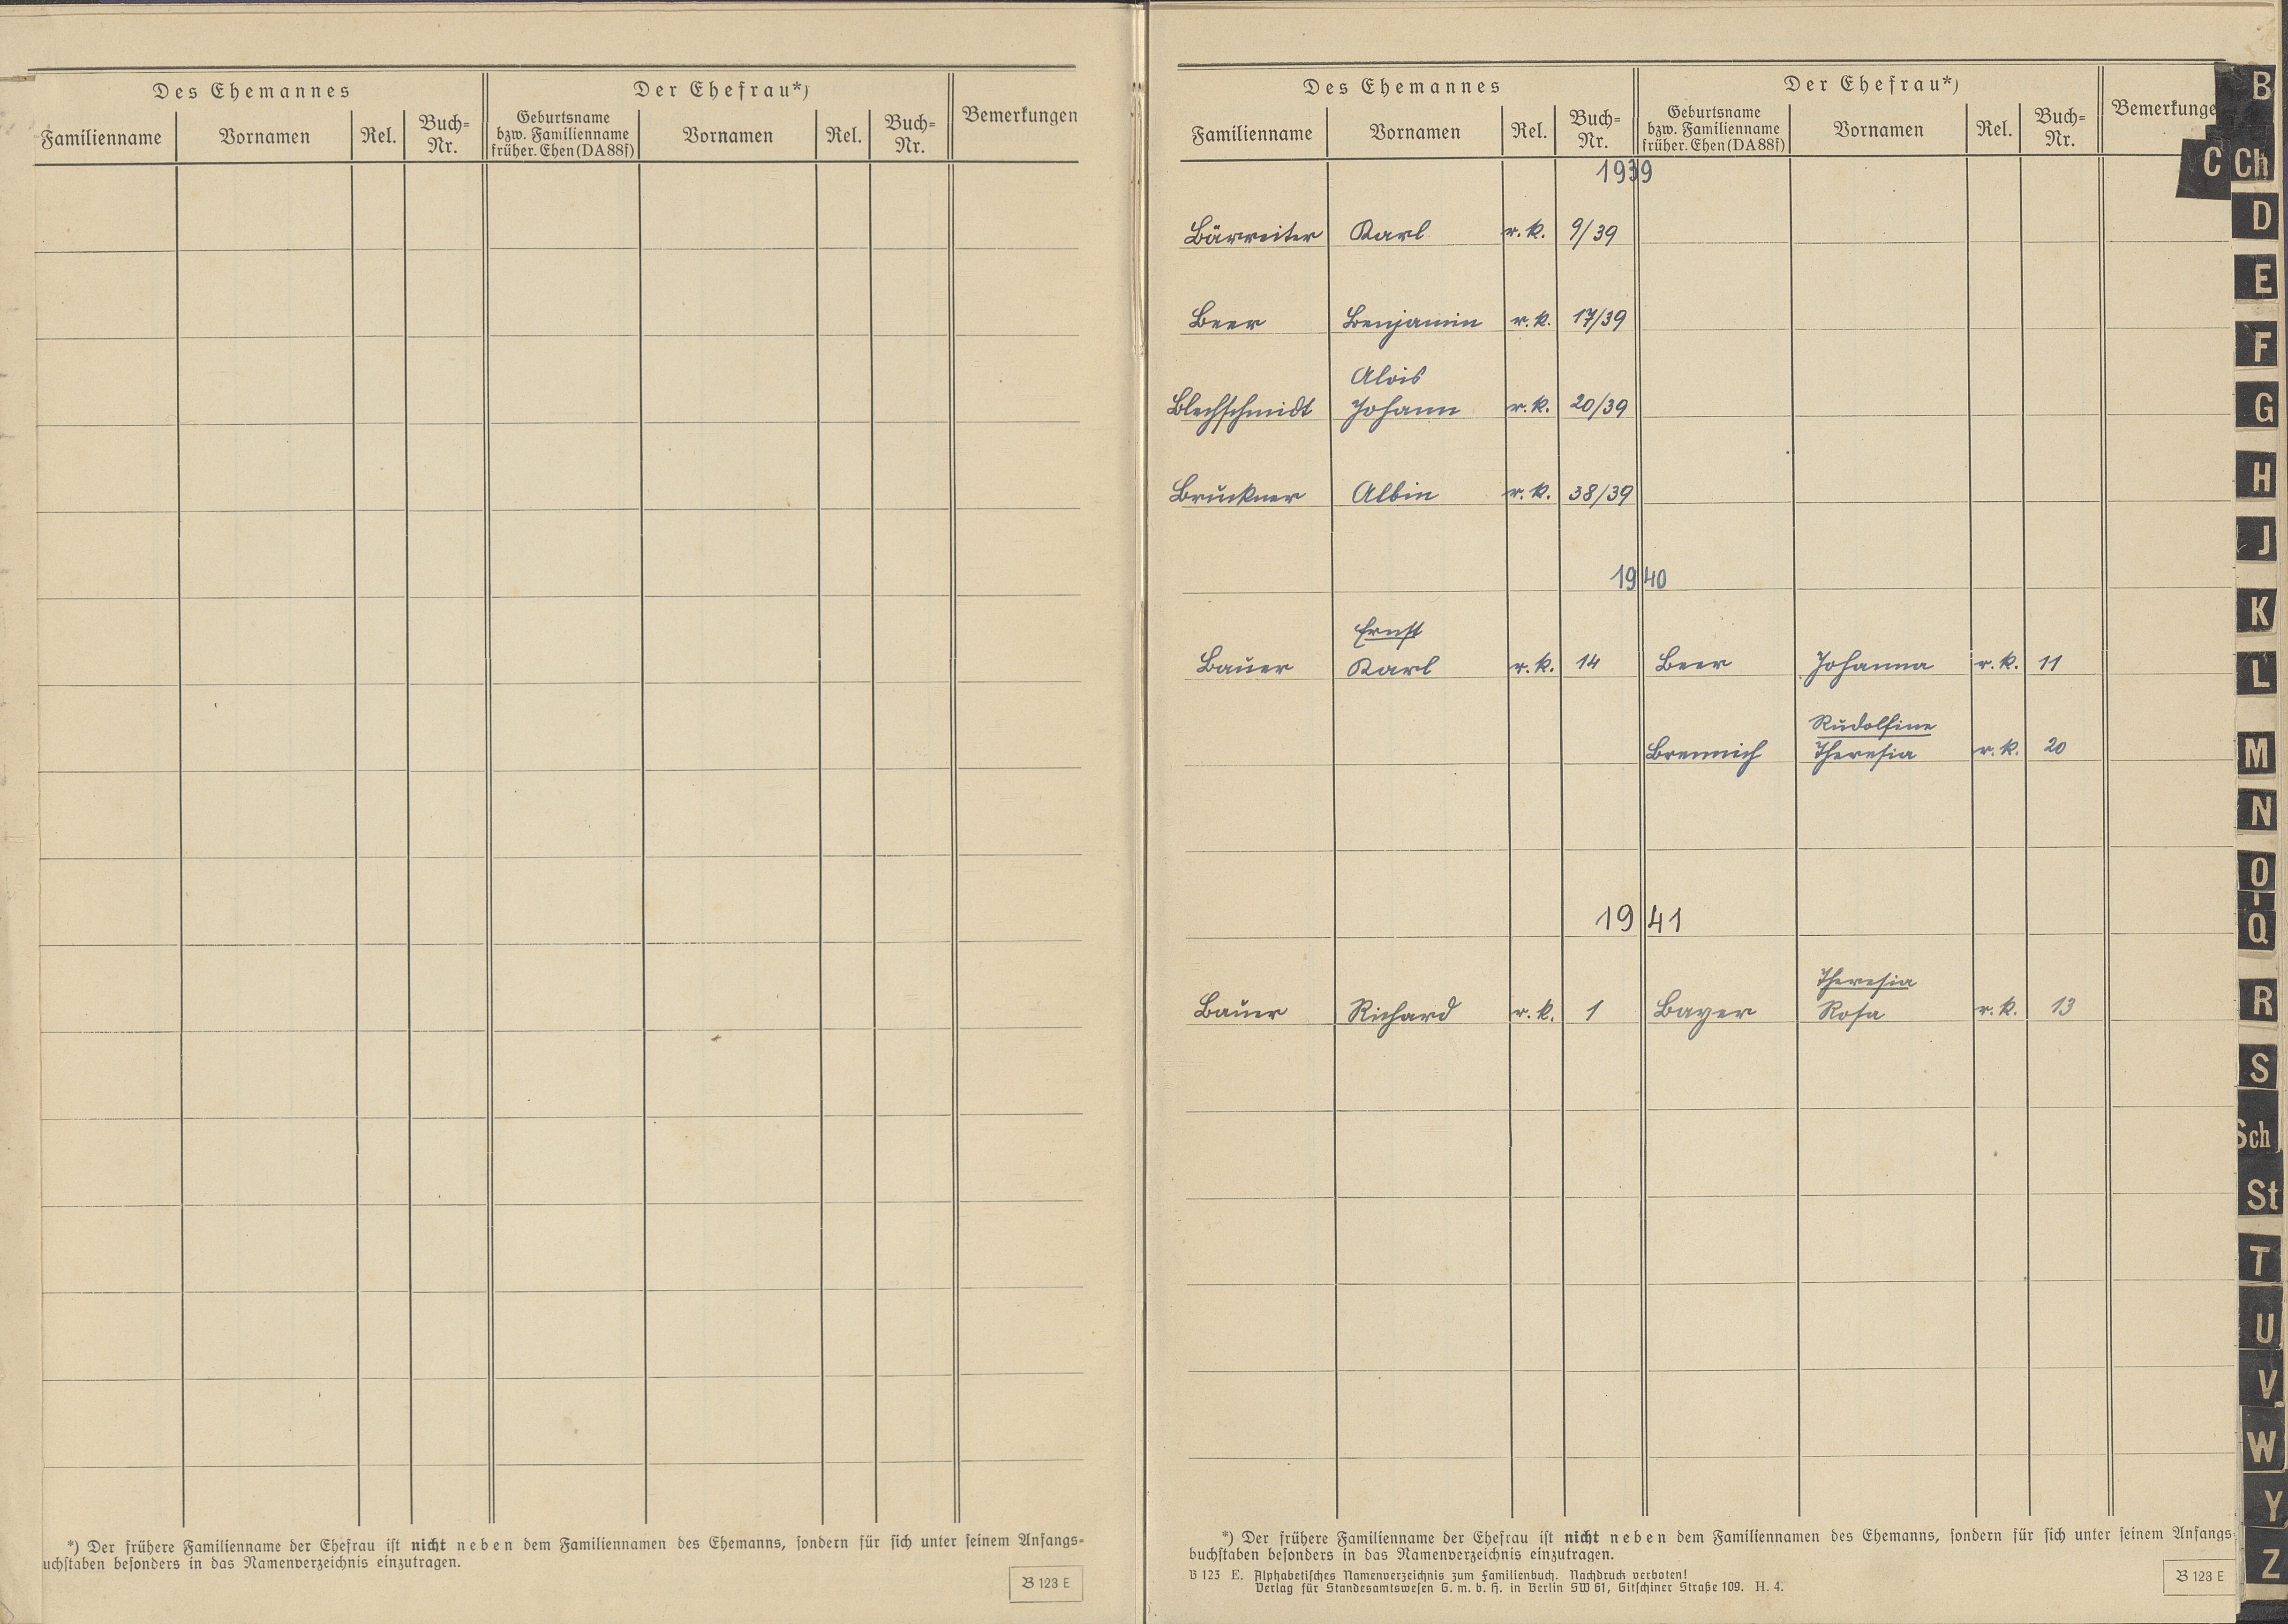 Des Ehemannes
Der Ehefrau*)
Bemerkungen
Familienname
Vornamen
Rel.
Buch=
Nr.
Geburtsname
bzw. Familienname
früher. Ehen (DA88f)
Vornamen
Rel.
Buch=
Nr.
*) Der frühere Familienname der Ehefrau ist nicht neben dem Familiennamen des Ehemanns, sondern für sich unter seinem Anfangs=
uchstaben besonders in das Namenverzeichnis einzutragen.
B 123 E
Des Ehemannes
Der Ehefrau*)
Bemerkunge
Familienname
Vornamen
Rel.
Buch=
Nr.
Geburtsname
bzw. Familienname
früher. Ehen (DA88f)
Vornamen
Rel.
Buch=
Nr.
1939
Bärreiter Karl r. k. 9/39
Beer Benjamin r. k. 17/39
Alois
Blechschmidt Johann r. k. 20/39
Bruckner Albin r. k. 38/39
1940
Ernst
Bauer Karl r. k. 14 Beer Johanna r. k. 11
Rudolfine
Brennich Theresia r. k. 20
1941
Theresia
Bauer Richard r. k. 1 Bayer Rosa r. k. 13
*) Der frühere Familienname der Ehefrau ist nicht neben dem Familiennamen des Ehemanns, sondern für sich unter seinem Anfangs
buchstaben besonders in das Namenverzeichnis einzutragen.
B 123 E. Alphabetisches Namenverzeichnis zum Familienbuch. Nachdruck verboten!
Verlag für Standesamtswesen G. m. b. H. in Berlin SW 61, Gitschiner Straße 109. H. 4.
B 123 E
B
C Ch
D
E
F
G
H
J
K
L
M
N
O
Q
R
S
Sch
St
T
U
V
W
Y
Z